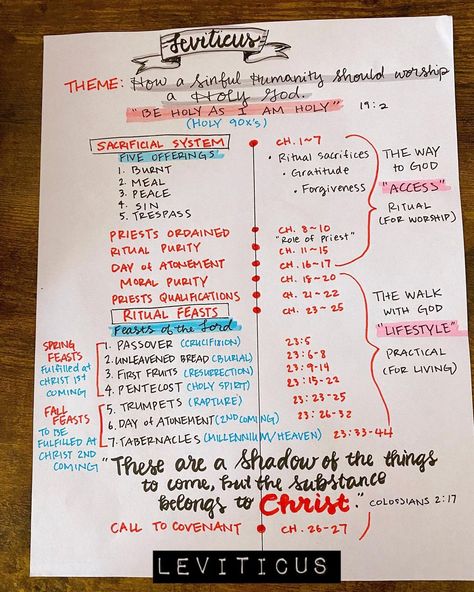 Leviticus
THEME: How a Sinful Humanity Should worship
a Holy God.
"BE HOLY AS I AM HOLY" 19:2
(HOLY 90x's)
SACRIFICIAL SYSTEM CH. 1~7
FIVE OFFERINGS
1. BURNT
2. MEAL
3. PEACE
4. SIN
5. TRESPASS
• Ritual Sacrifices
• Gratitude
• Forgiveness
THE WAY
TO GOD
"ACCESS"
RITUAL
(FOR WORSHIP)
PRIESTS ORDAINED CH. 8~10
"Role of Priest"
RITUAL PURITY CH. 11~15
DAY OF ATONEMENT CH. 16~17
MORAL PURITY CH. 18~20
PRIESTS QUALIFICATIONS CH. 21~22
RITUAL FEASTS CH. 23~25
Feasts of the Lord
THE WALK
WITH GOD
"LIFESTYLE"
PRACTICAL
(FOR LIVING)
SPRING
FEASTS
Fulfilled at
CHRIST 1ST
COMING
1. PASSOVER (CRUCIFIXION) 23:5
2. UNLEAVENED BREAD (BURIAL) 23:6-8
3. FIRST FRUITS (RESURRECTION) 23:9-14
4. PENTECOST (HOLY SPIRIT) 23:15-22
FALL
FEASTS
TO BE
FULFILLED AT
CHRIST 2ND
COMING
5. TRUMPETS (RAPTURE) 23:23-25
6. DAY OF ATONEMENT (2ND COMING) 23:26-32
7. TABERNACLES (MILLENNIUM/HEAVEN) 23:33-44
"These are a Shadow of the things
to come, but the substance
belongs to Christ." COLOSSIANS 2:17
CALL TO COVENANT CH. 26-27
LEVITICUS